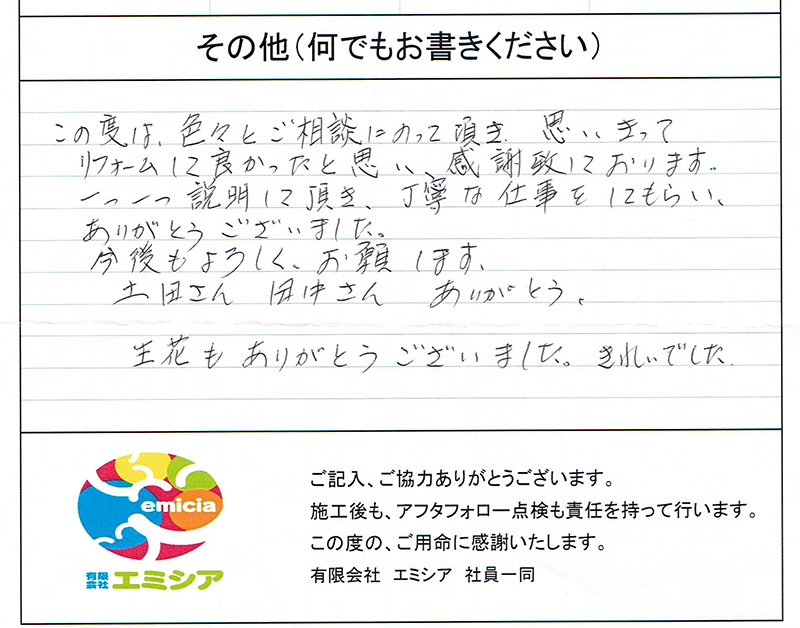 その他（何でもお書きください）
この度は、色々とご相談にのって頂き、思いきって
リフォームして良かったと思い、感謝致しております。
一つ一つ説明して頂き、丁寧な仕事をしてもらい、
ありがとうございました。
今後もよろしく、お願します、
土田さん 田中さん ありがとう。
生花もありがとうございました。きれいでした
emicia
有限会社 エミシア
ご記入、ご協力ありがとうございます。
施工後も、アフタフォロー点検も責任を持って行います。
この度の、ご用命に感謝いたします。
有限会社 エミシア 社員一同